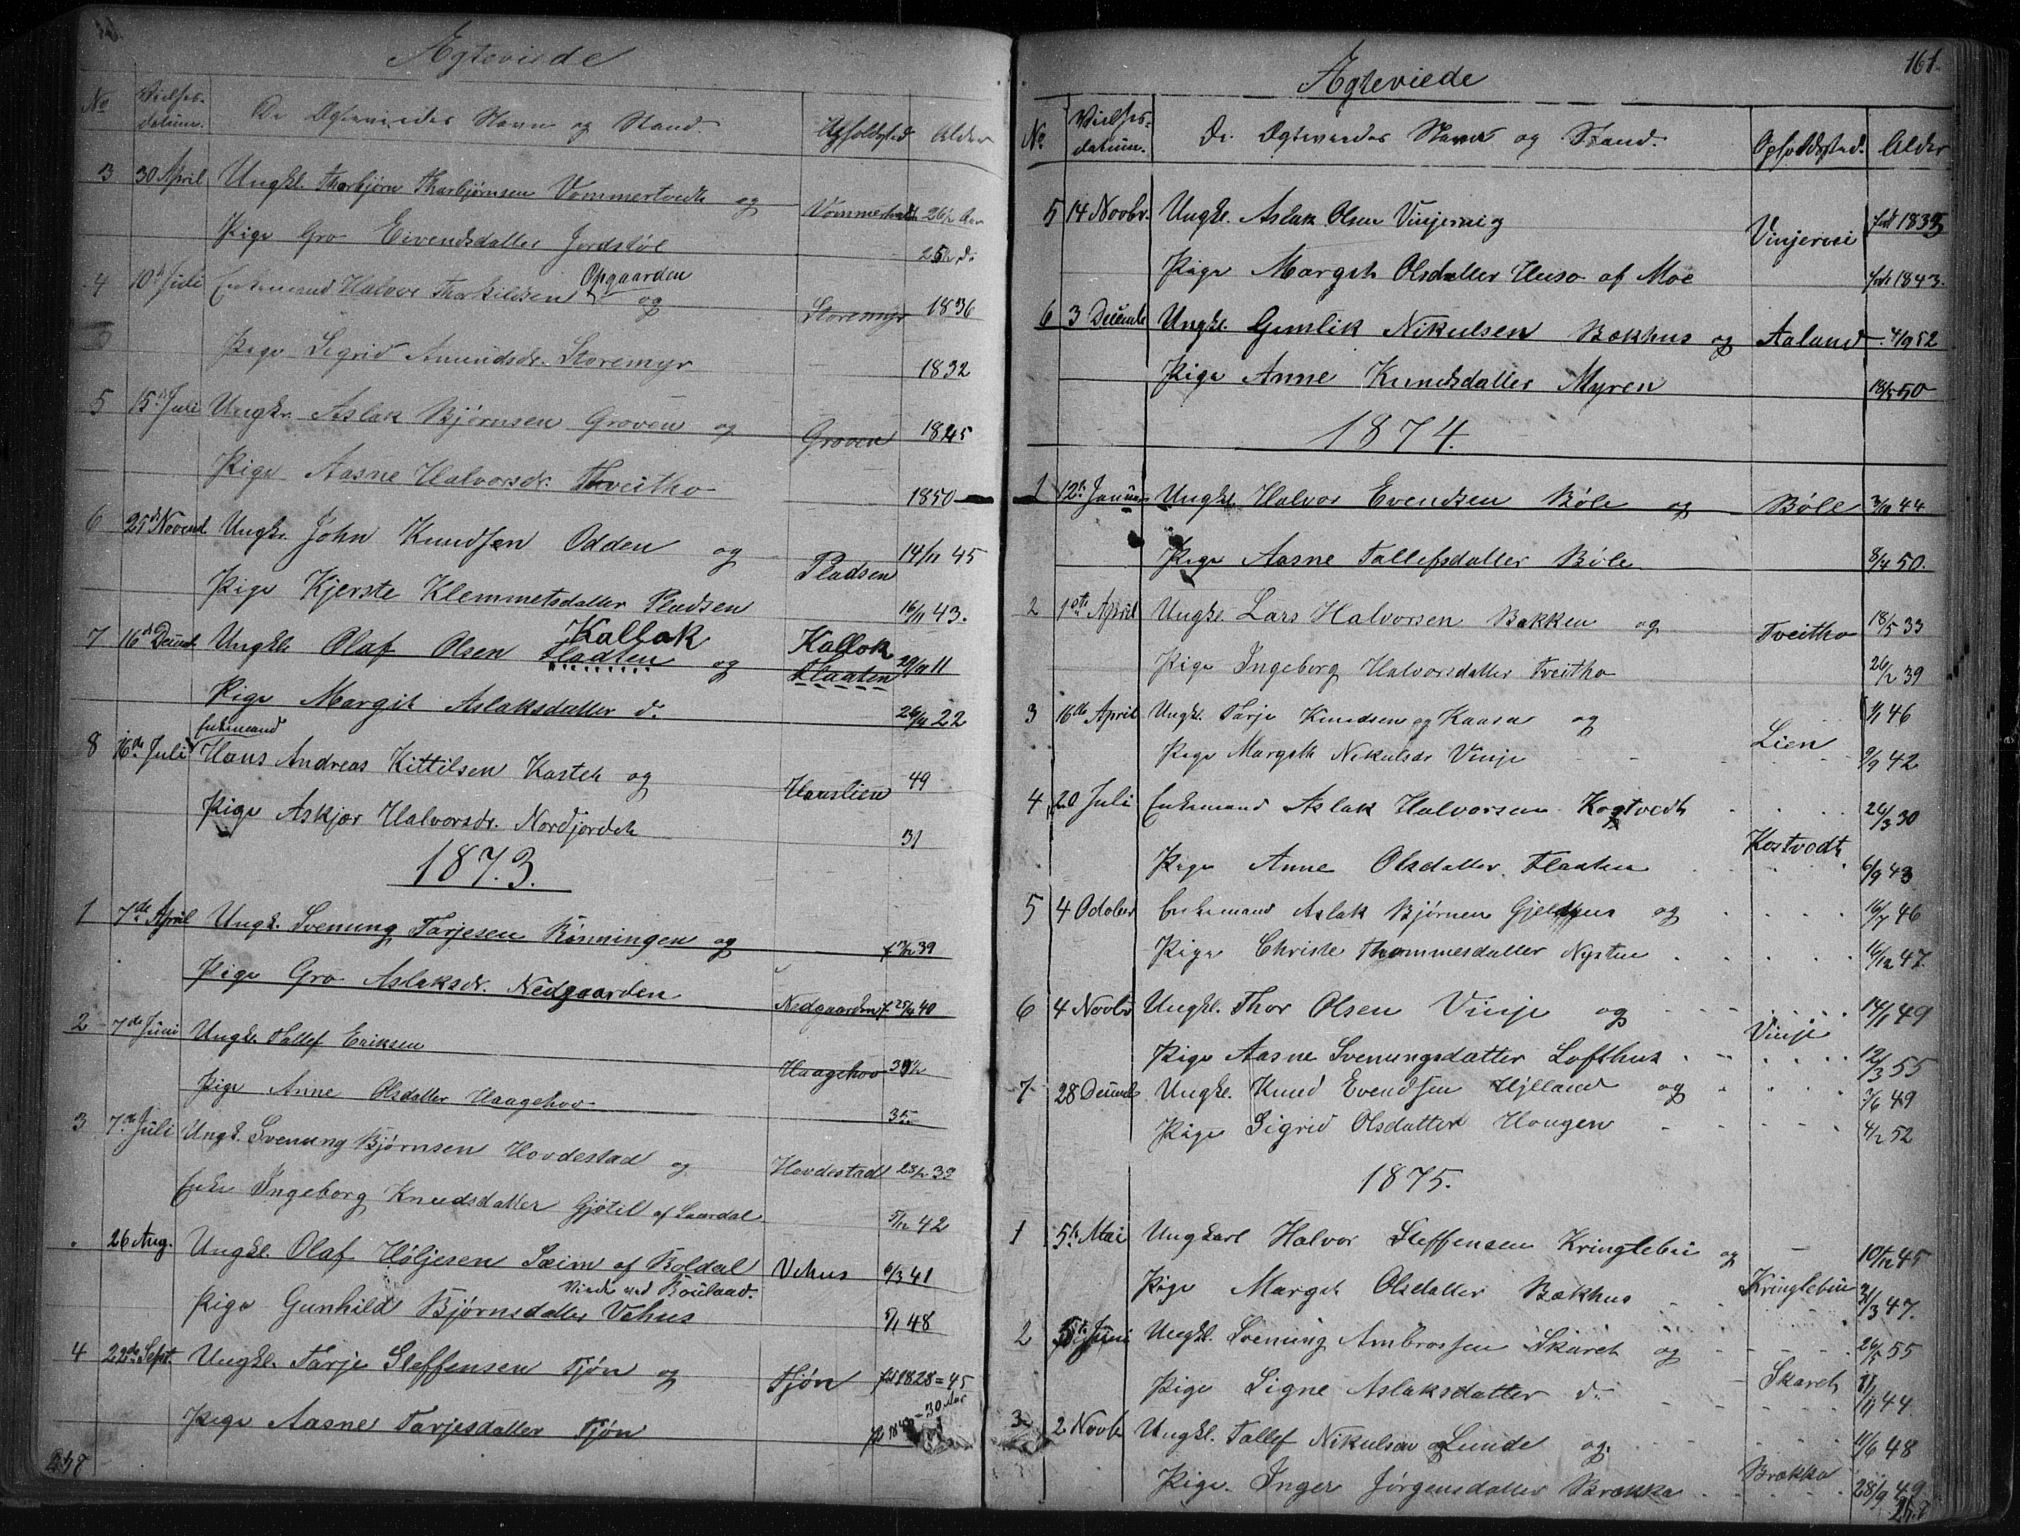 Ægteviede
No Vielses- datum. De Ægteviedes Navn og Stand. Opholdsted Alder
3 30 April Ungkl. Thorbjørn Thorbjørnsen Vommertvedt og Vommertvedt 26½ Aar
Pige Gro Eivendsdatter Jordstøl 25½ d:
4 10d Juli Enkemand Halvor Tharkildsen Opgaarden og Storemyr 1836
Pige Sigrid Amundsdr. Storemyr 1832
5 15d Juli Ungkr. Aslak Bjørnsen Groven og Groven 1845
Pige Aasne Halvorsdr. Tveitho 1850
6 25d Novend Ungkr. John Knudsen Odden og Pladsen 14/11 45
Pige Kjerste Klemmetsdatter Pladsen 16/11 43.
7 16d Decemb Ungkl Olaf Olsen Flaaten Kallok og Kallok Flaaten 29/9 11
Pige Margit Aslaksdatter d. 26/4 22
Enkemand
8 16de Juli Hans Andreas Kittilsen Kasteh og Hauslien 49
Pige Askjær Halvorsdr. Nordjordet 31
1873.
1 7de April Ungk. Svenung Tarjesen Rønningen og 39
Pige Gro Aslaksdr. Nedgaarden Nedgaarden f. 25/4 40
2 7de Juni Ungk. Tallef Eriksen Haagehov 39½
Pige Anne Olsdatter Haagehov 35
3 7de Juli Ungk. Svenung Bjørnsen Hovdestad og Hovdestad 28/2 33
Enke Ingeborg Knudsdatter Gjøtil af Laurdal 5/12 42
26 Aug. Ungkl. Olaf Høljesen Sæim af Boldal Vehus 6/3 41
Viede ved Rouland.
Pige Gunhild Bjørnsdatter Vehus 5/1 48
4 22de Sept. Ungkl. Tarje Steffensen Tjøn og Tjøn fd 1828 = 45
Pige Aasne Tarjesdatter Tjøn = 30 Aar
258
161.
Ægteviede
No Vielses- datum. De Ægteviedes Navn og Stand. Opholdsted. Alder
5 14 Novbr. Ungkl. Aslak Olsen Vinjerui og Vinjerui født 1835
Pige Margit Olsdatter Huso af Moe født 1843.
6 3 Decemb Ungkl. Gunlik Nikulsen Bækhus og Aaland 4/9 52
Pige Anne Knudsdatter Myren 18/5 50
1874.
1 12te Januar Ungkl Halvor Evendsen Bøle og Bøle 3/10 44
Pige Aasne Tallefsdatter Bøle 8/4 50.
2 1ste April Ungkl. Lars Halvorsen Bakken og Tveitho 18/5 33
Pige Ingeborg Halvorsdatter Tveitho 26/2 39
3 16de April Ungkl. Tarje Knudsen og Kaasa og Lien 1/1 46
Pige Margith Nikulsdr Vinje 9/9 42
4 20 Juli Enkemand Aslak Halvorsen Kostvedt Kostvedt 24/3 30
Pige Anne Olsdatter Flaaten 6/9 43
5 4 October Enkemand Aslak Bjørnsen Gjelhus og 16/7 46
Pige Christe Thommesdatter Nysten 16/12 47.
6 4 Novbr Ungkl. Thor Olsen Vinje og Vinje 14/1 49
Pige Aasne Svenungsdatter Lofthus 12/3 55
7 28 Decemb Ungkl. Knud Evendsen Hjlland og 3/6 49
Pige Sigrid Olsdatter Haugen 4/2 52
1875.
1 5te Mai Ungkarl Halvor Steffensen Kringlebu og Kringlebu 10/12 45
Pige Margit Olsdatter Bækhus 31/3 47.
2 5te Juni Ungkl. Svenung Ambrossen Skaret og Skaret 26/5 55
Pige Signe Aslaksdatter d. 11/11 44
3 2 Novb Ungkl. Tallef Nikulsen Lunde og Brække 11/6 48
Pige Inger Jørgensdatter Brække 28/9 49